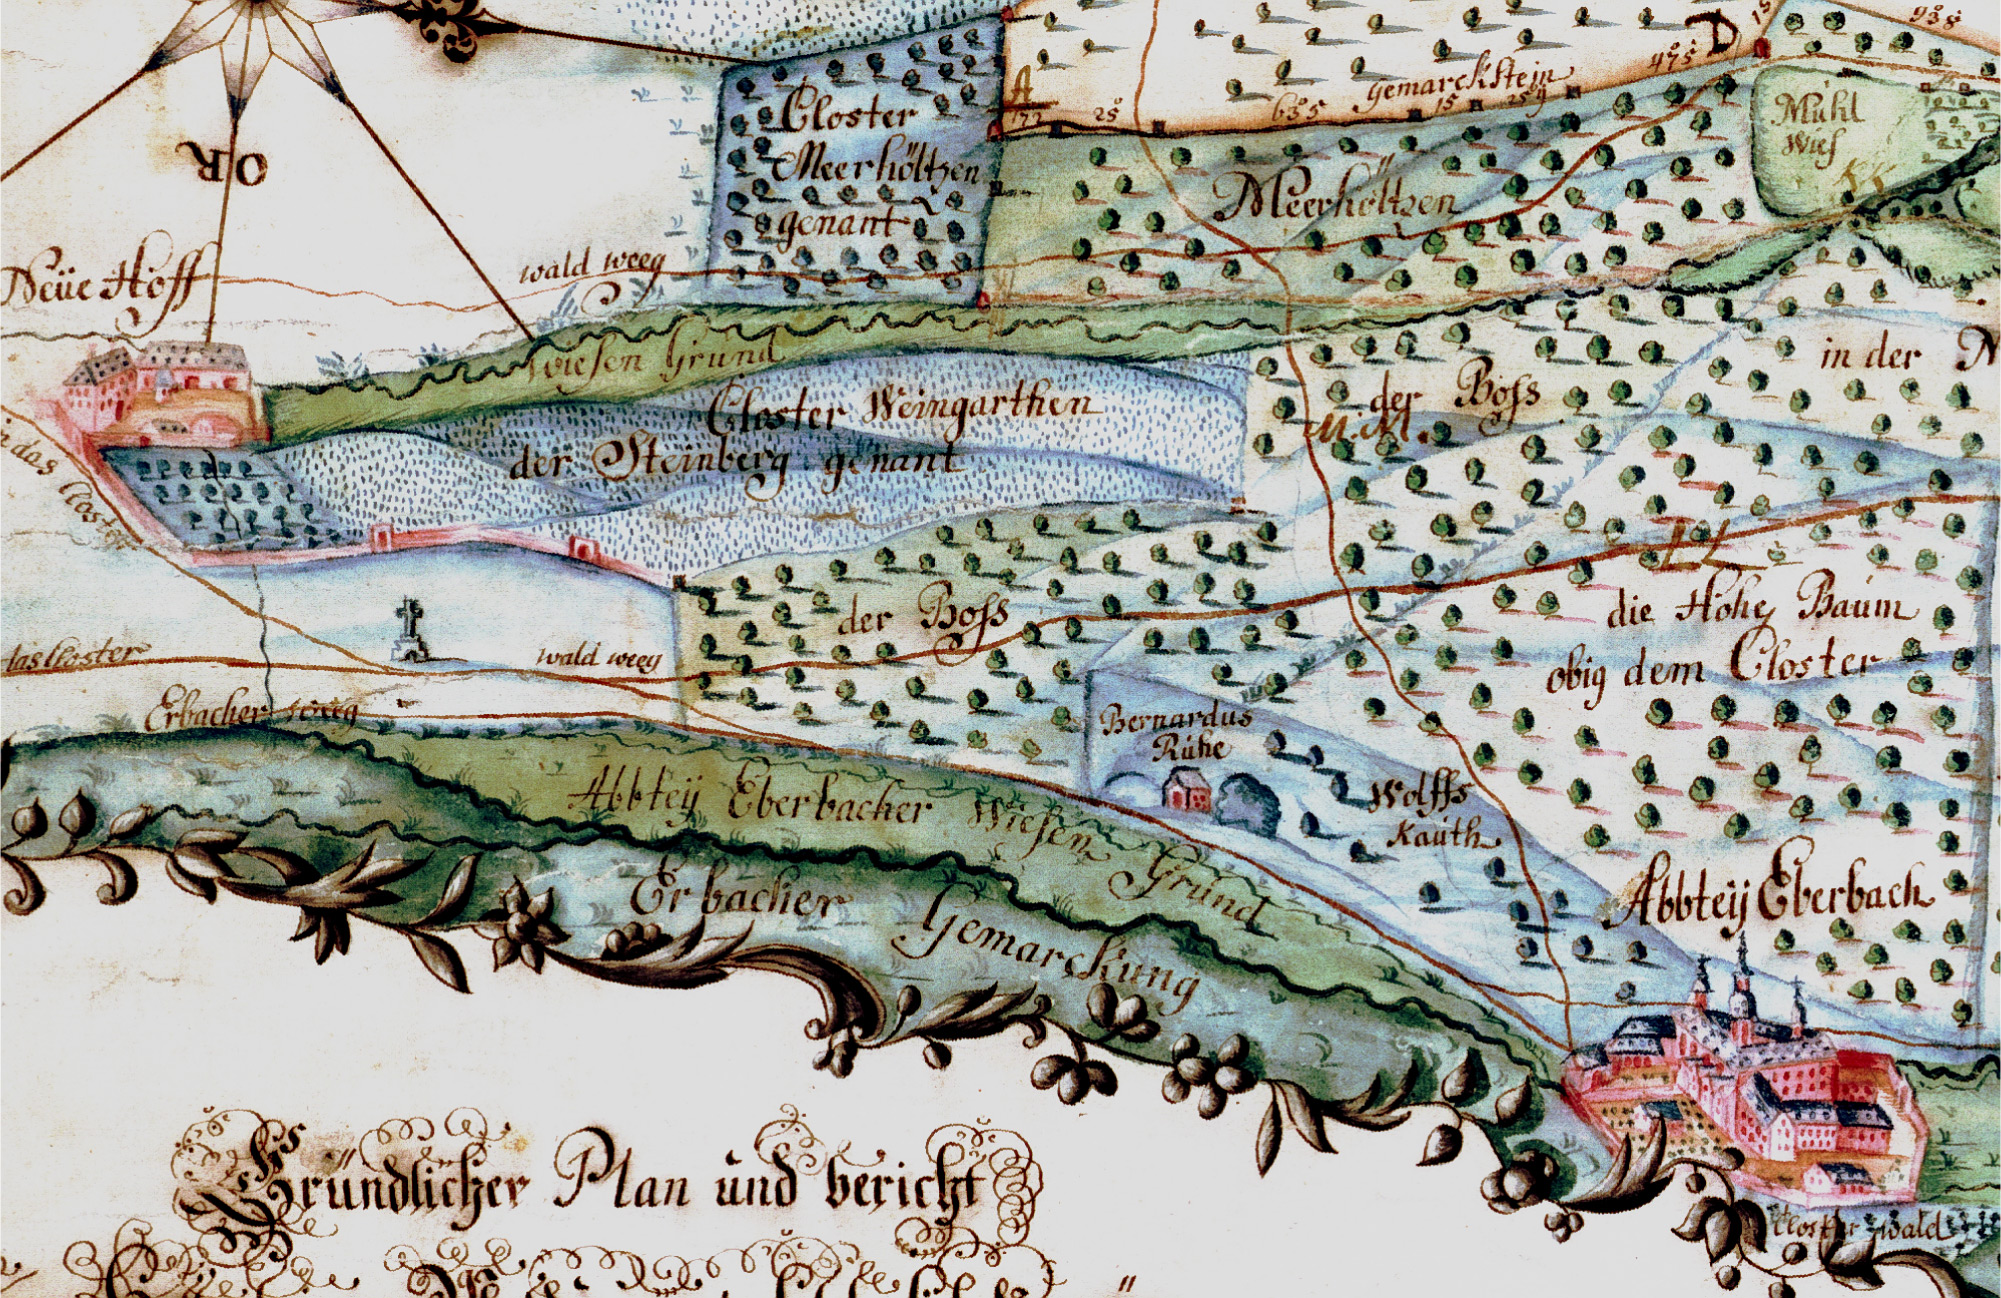 OR
Closter
Meerhöltzen
genant
A
172
25
635
gemarckstein
15
259
475
D
15
935
Mühl
Wies
KK
Meerhöltzen
Neüe Hoff
wald weeg
wiesen Grund
Closter Weingarthen
der Steinberg genant
der Boss
M.M.
in der
in das Closter
LL
die Hohe Baum
obig dem Closter
der Boss
das Closter
wald weeg
Erbacher weeg
Bernardus
Ruhe
Wolffs
Kauth
Abbteÿ Eberbacher Wiesen Grund
Erbacher Gemarckung
Abbteÿ Eberbach
Closter Wald
Gründlicher Plan und bericht